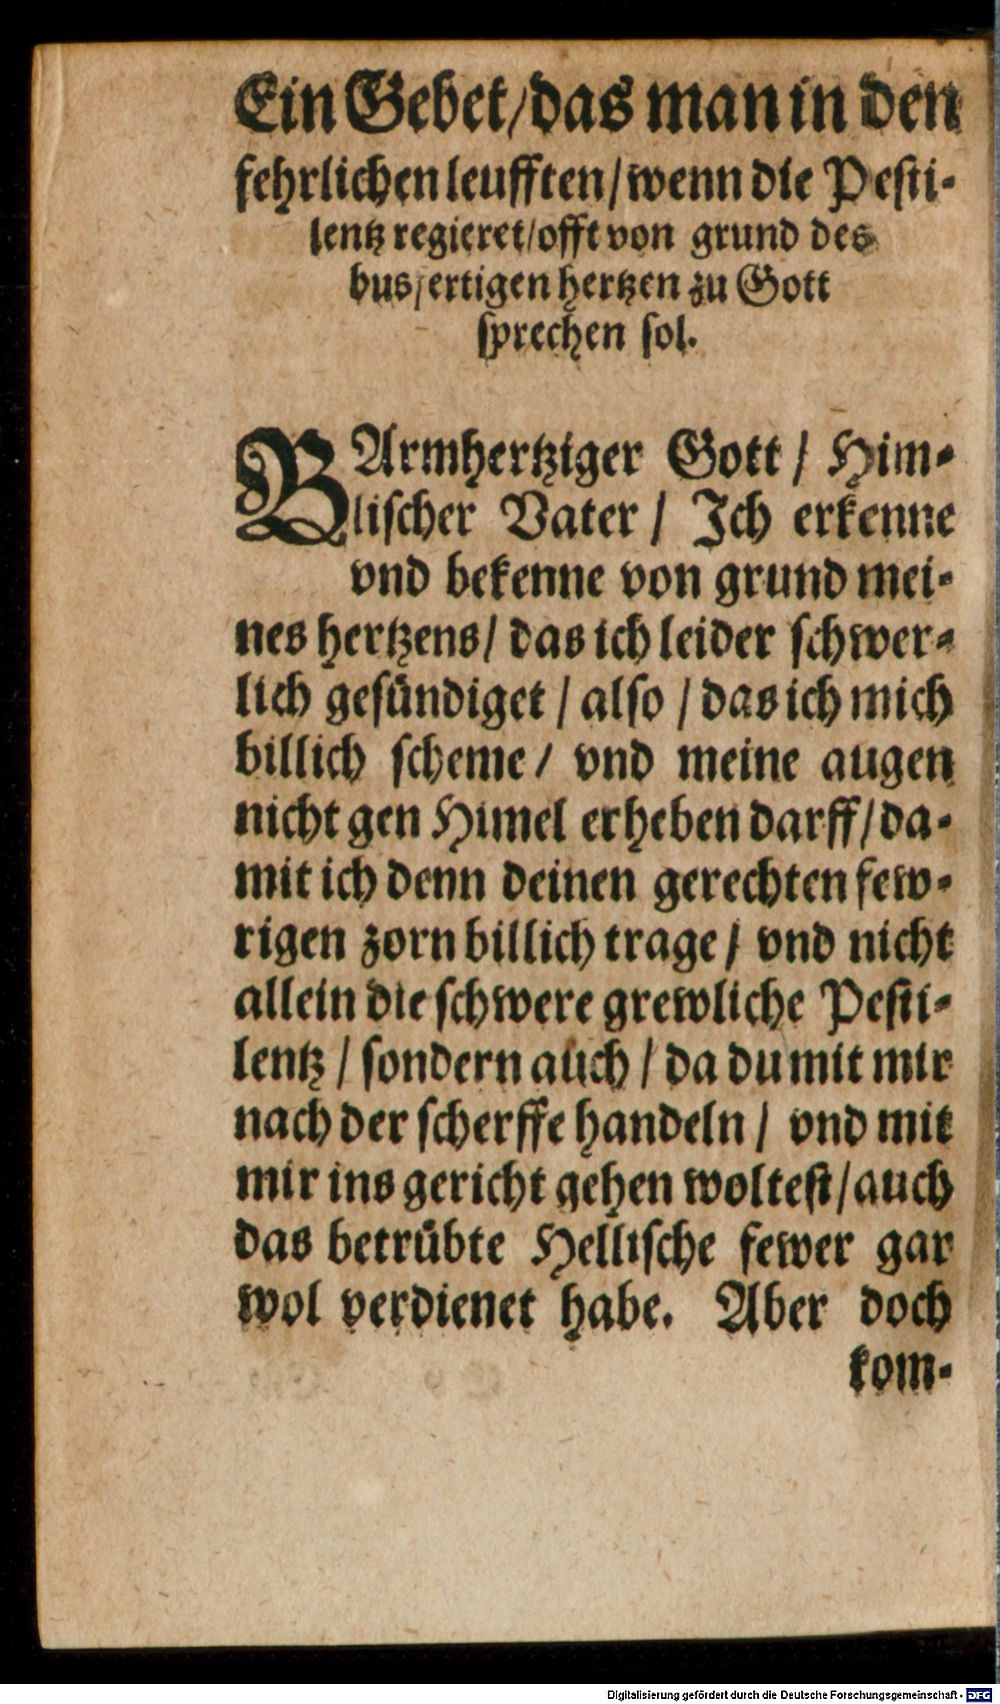 Ein Gebet/ das man in den
fehrlichen leufften/ wenn die Pesti-
lentz regieret/ offt von grund des
busfertigen hertzen zu Gott
sprechen sol.
BArmhertziger Gott / Him-
lischer Vater / Ich erkenne
vnd bekenne von grund mei-
nes hertzens/ das ich leider schwer-
lich gesündiget / also / das ich mich
billich scheme / vnd meine augen
nicht gen Himel erheben darff/ da-
mit ich denn deinen gerechten few-
rigen zorn billich trage / vnd nicht
allein die schwere grewliche Pesti-
lentz / sondern auch / da du mit mir
nach der scherffe handeln / vnd mit
mir ins gericht gehen woltest/ auch
das betrübte Hellische fewer gar
wol verdienet habe. Aber doch
kom-
Digitalisierung gefördert durch die Deutsche Forschungsgemeinschaft - DFG